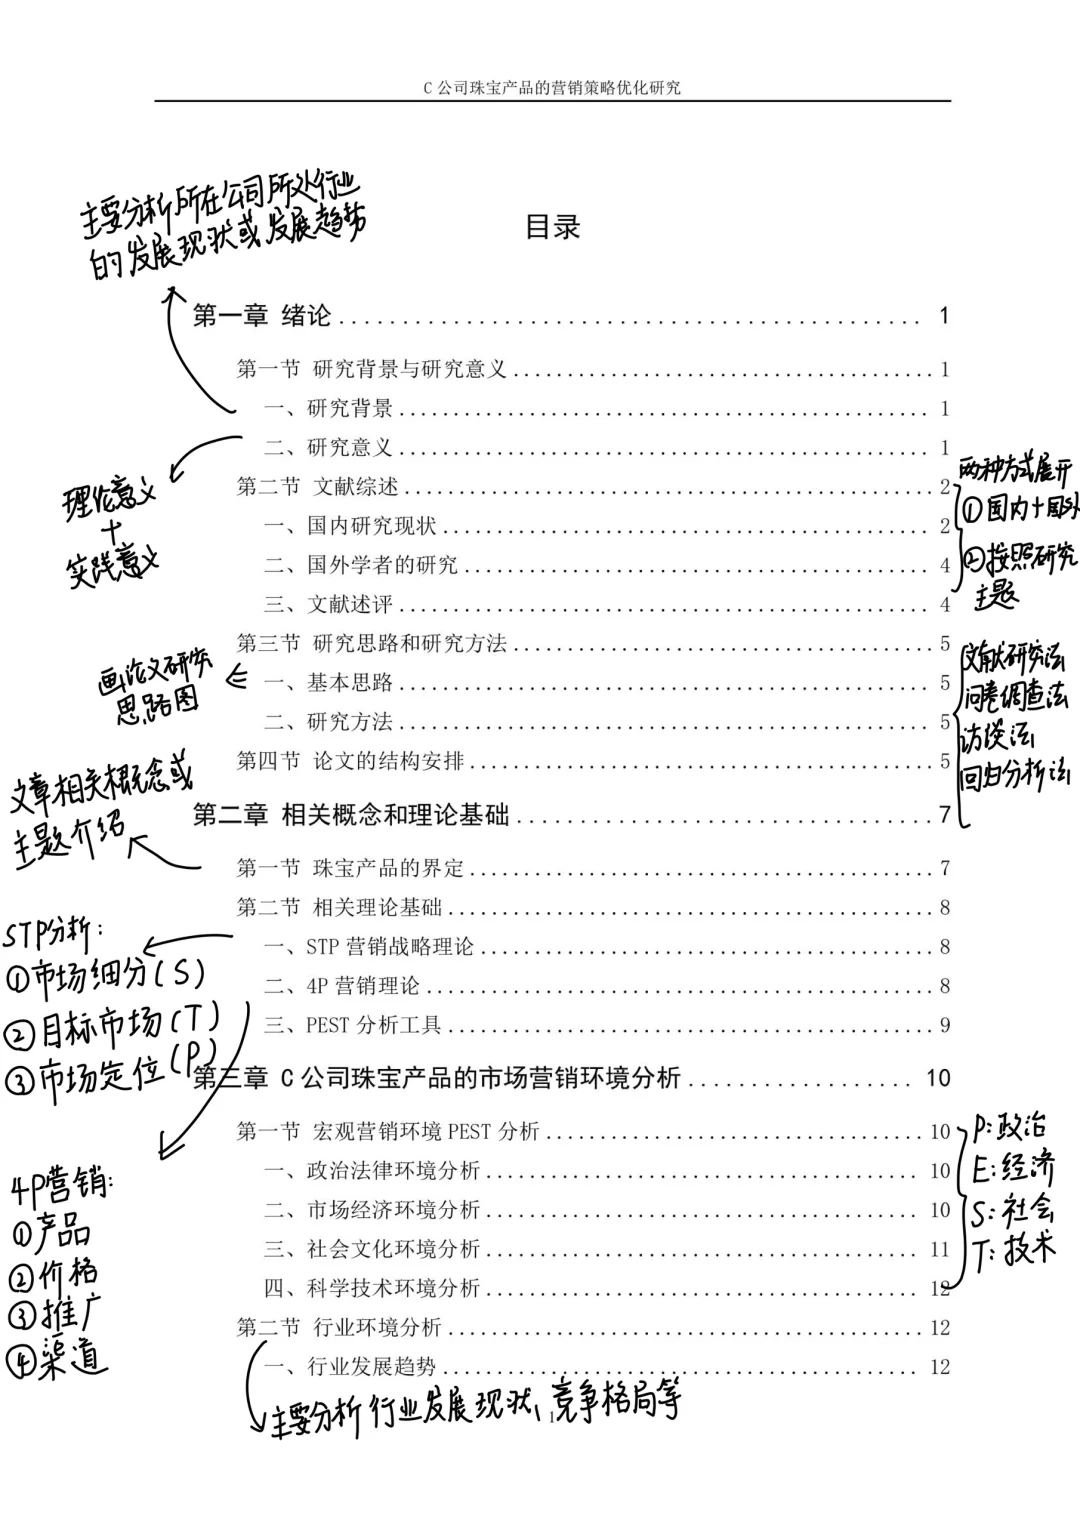 C 公司珠宝产品的营销策略优化研究
主要分析所在公司所处行业
的发展现状或发展趋势
目录
第一章 绪论 1
第一节 研究背景与研究意义 1
一、研究背景 1
二、研究意义 1
理论意义
+
实践意义
第二节 文献综述 2
一、国内研究现状 2
二、国外学者的研究 4
三、文献述评 4
两种方式展开
①国内+国外
②按照研究
主题
第三节 研究思路和研究方法 5
一、基本思路 5
二、研究方法 5
第四节 论文的结构安排 5
画论文研究
思路图
文献研究法
问卷调查法
访谈法
回归分析法
文章相关概念或
主题介绍
第二章 相关概念和理论基础 7
第一节 珠宝产品的界定 7
第二节 相关理论基础 8
一、STP 营销战略理论 8
二、4P 营销理论 8
三、PEST 分析工具 9
STP分析:
①市场细分(S)
②目标市场(T)
③市场定位(P)
第三章 C 公司珠宝产品的市场营销环境分析 10
第一节 宏观营销环境 PEST 分析 10
一、政治法律环境分析 10
二、市场经济环境分析 10
三、社会文化环境分析 11
四、科学技术环境分析 12
P:政治
E:经济
S:社会
T:技术
4P营销:
①产品
②价格
③推广
④渠道
第二节 行业环境分析 12
一、行业发展趋势 12
主要分析行业发展现状、竞争格局等
1